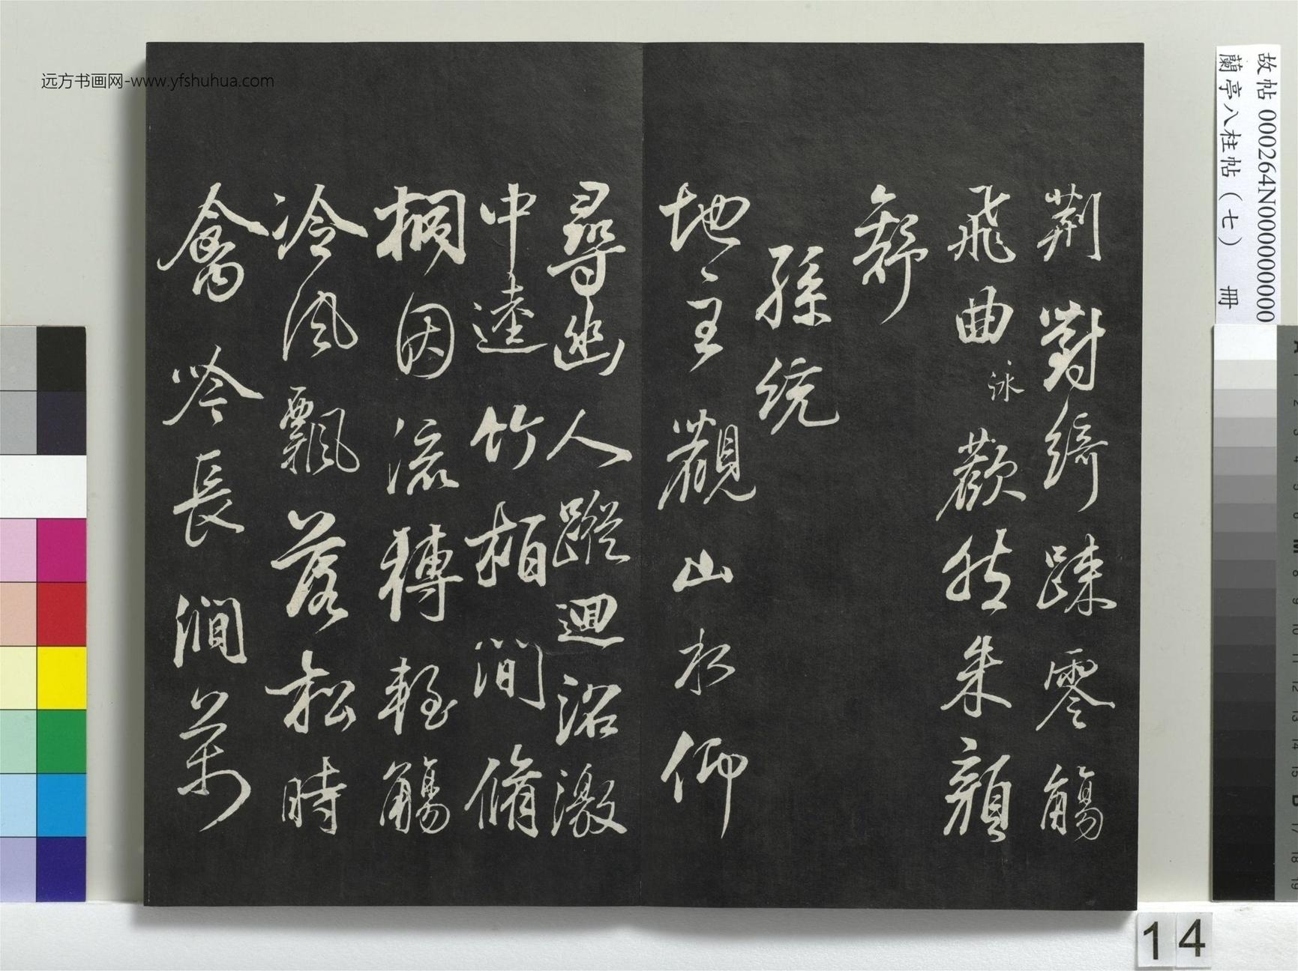 远方书画网-www.yfshuhua.com
故帖 000264N000000000
蘭亭八柱帖（七） 冊
荆對綺踈零觴
飛曲泳歡然朱顔
舒
孫統
地主觀山水仰
尋幽人蹤迴沼激
中逵竹栢澗脩
桐因流轉輕觴
冷風飄落松時
禽吟長澗萬
14